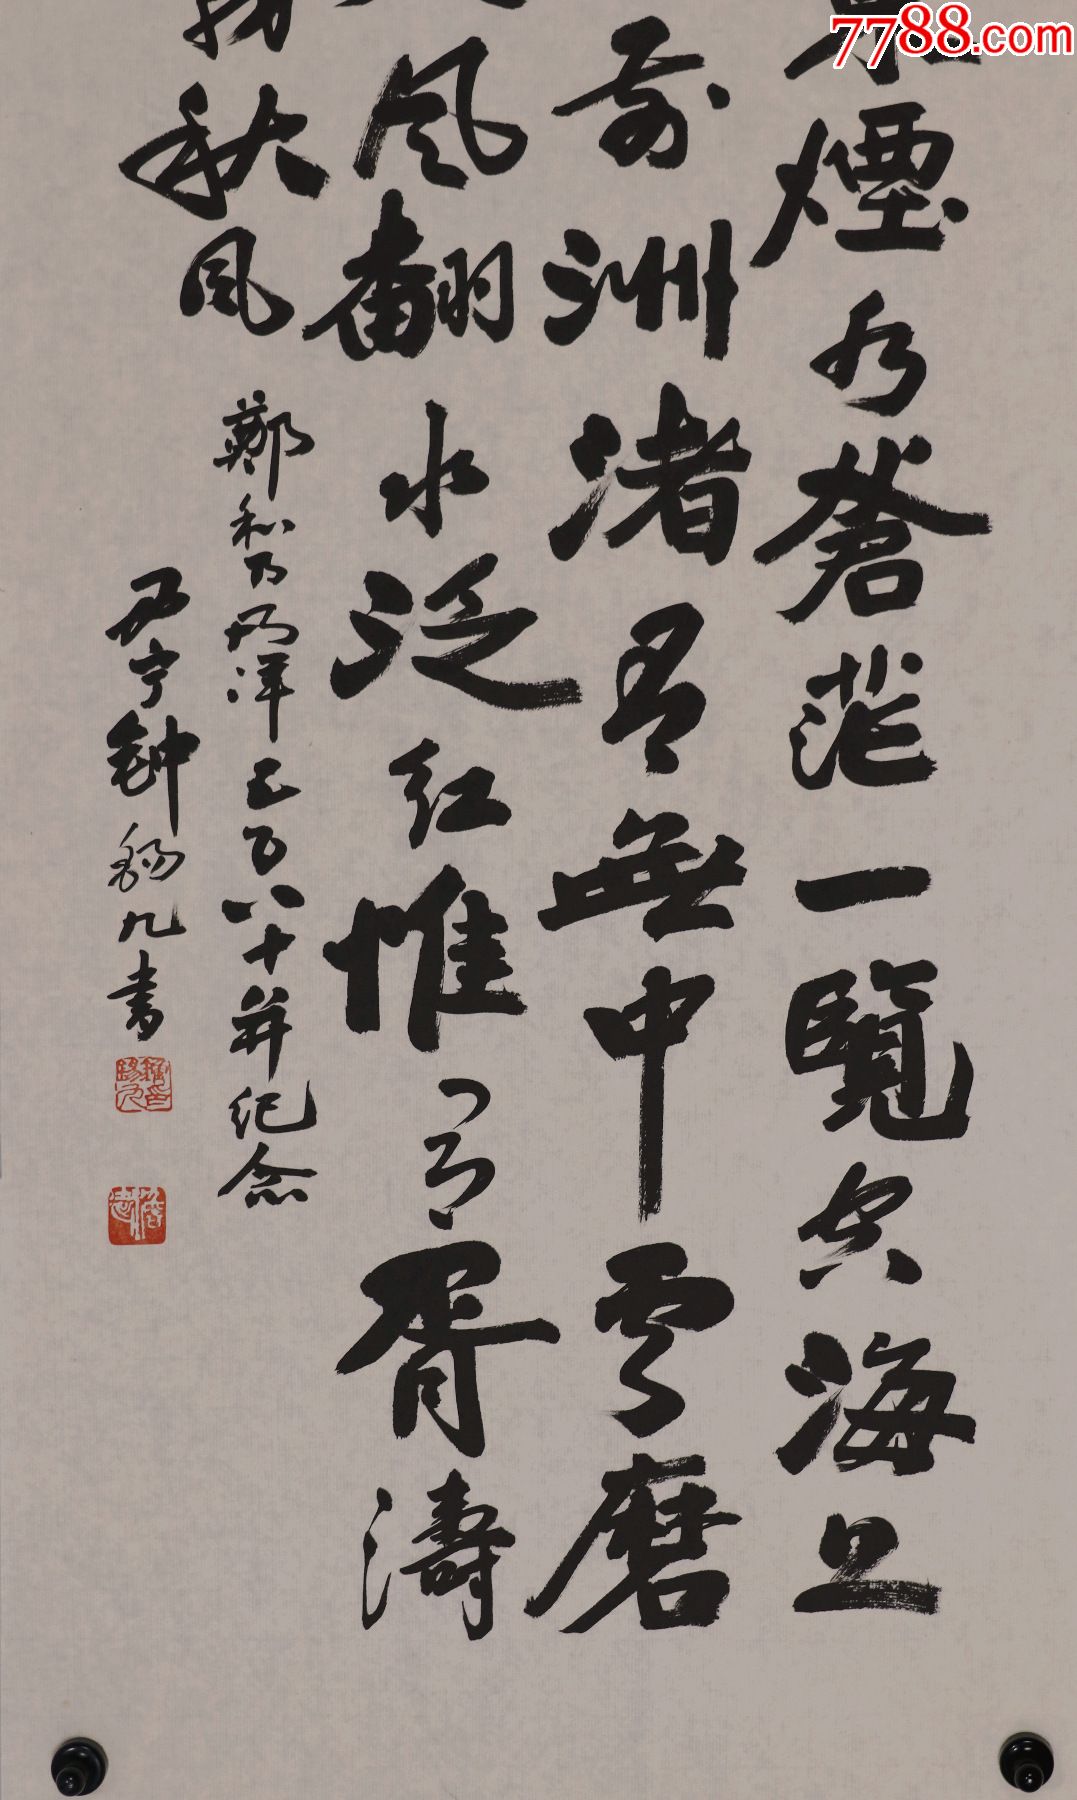 7788.com
煙水蒼茫一覽空海上
前洲渚有無中雲磨
風翻水泛紅惟有胥濤
秋風
鄭和下西洋五百八十年紀念
鍾錫九書